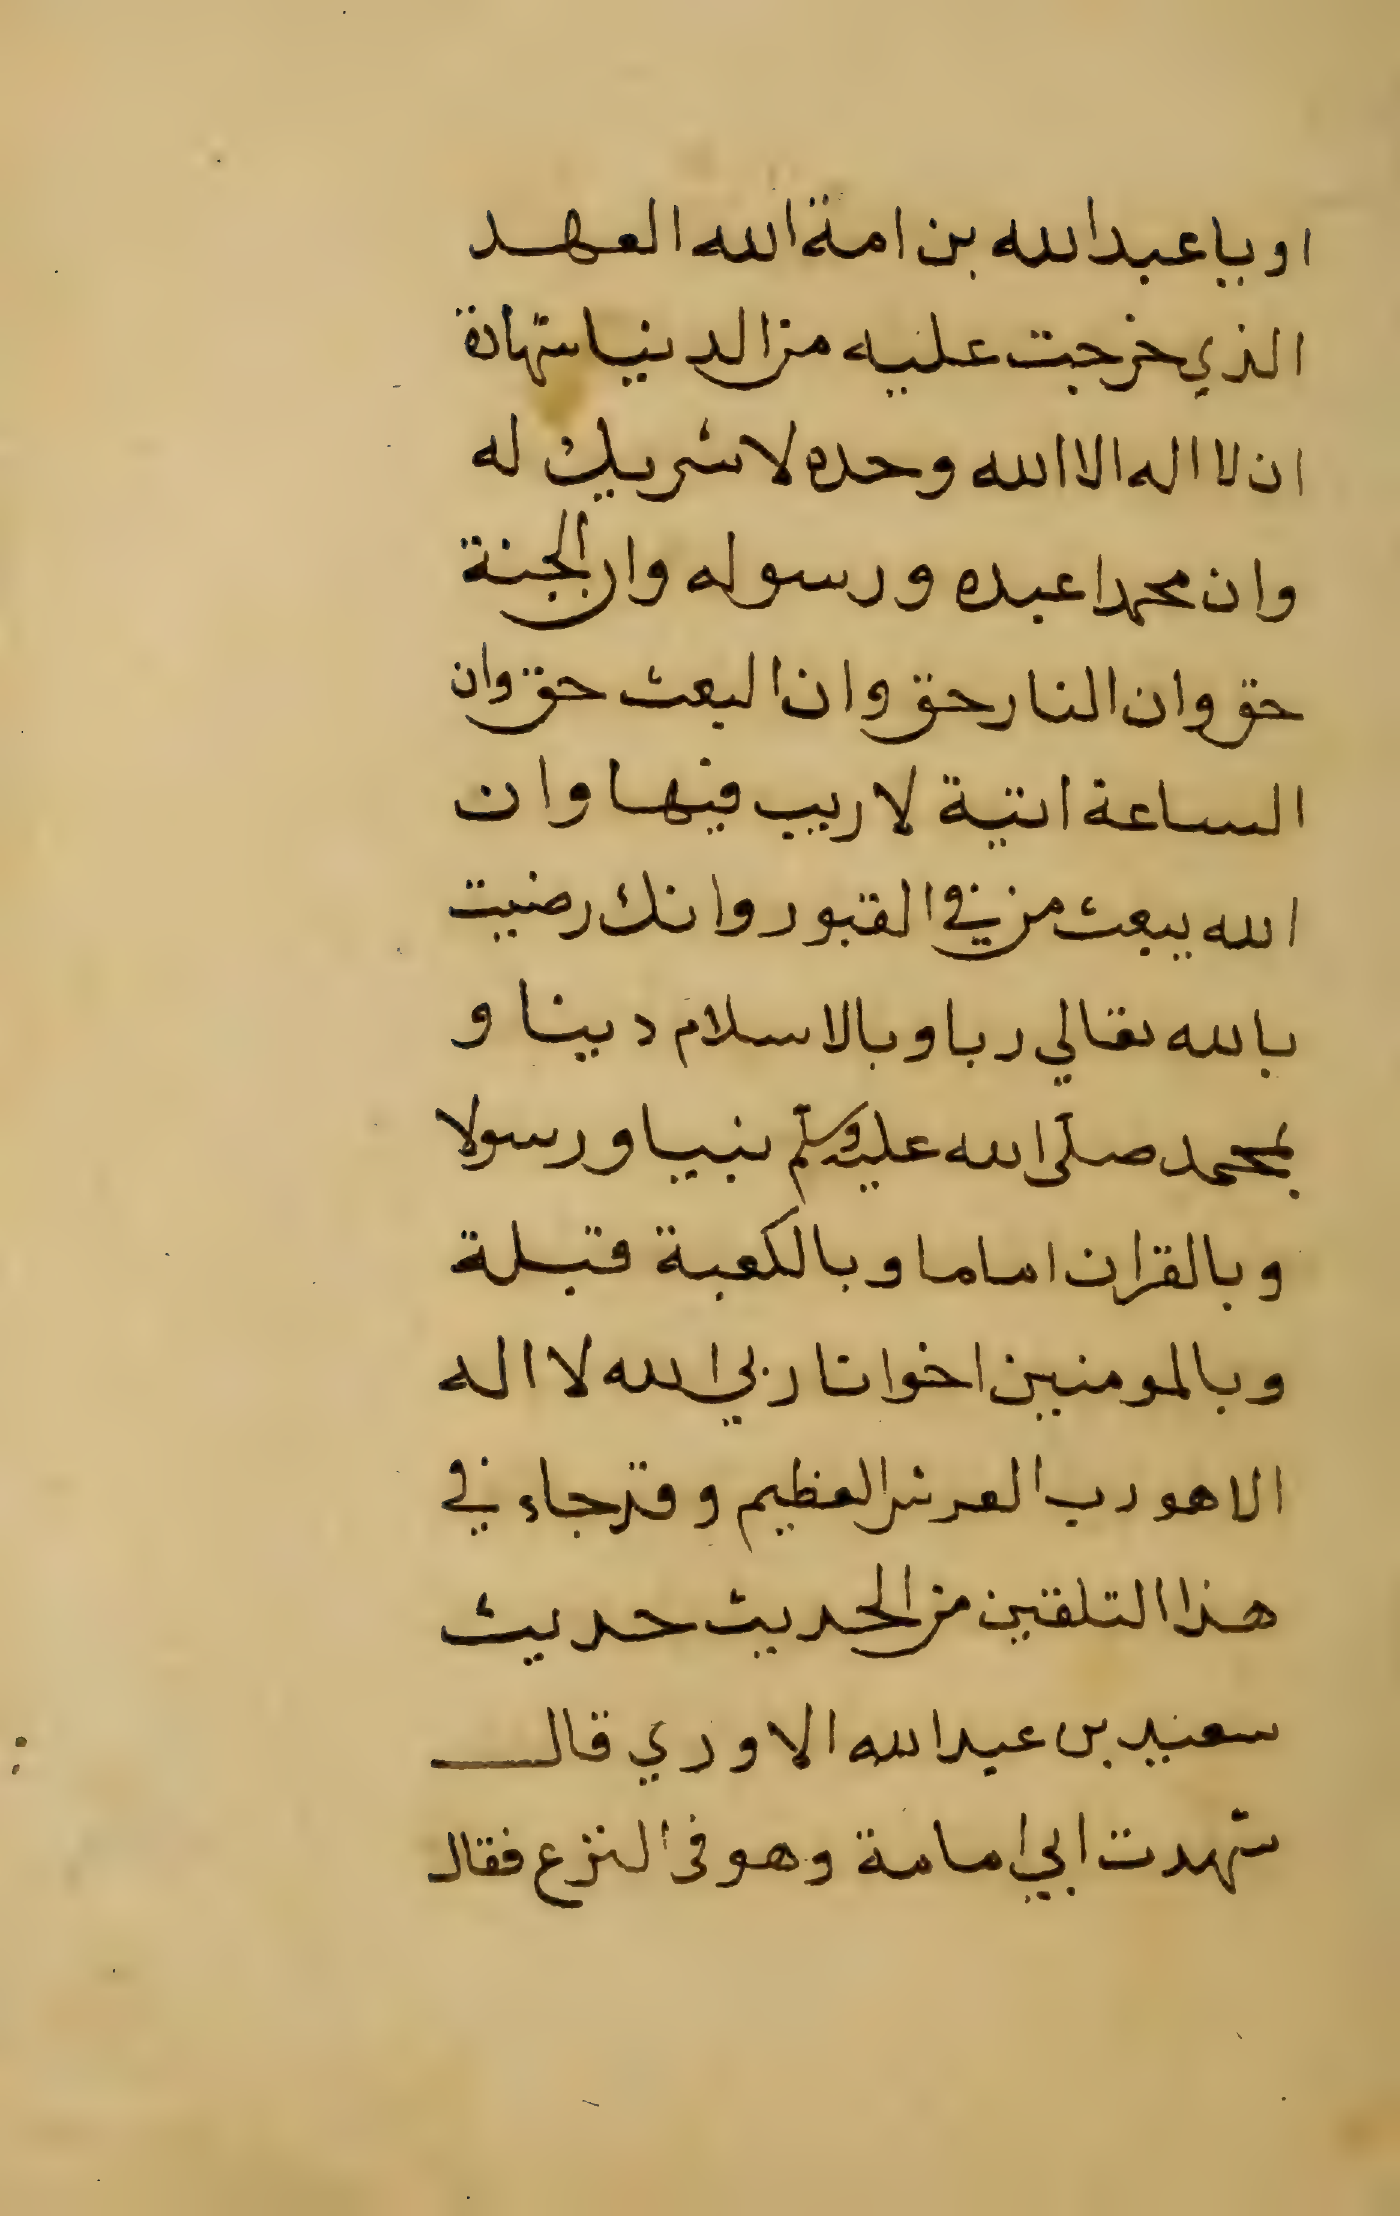 او يا عبد الله بن امة الله العهد
الذي خرجت عليه من الدنيا شهادة
ان لا اله الا الله وحده لا شريك له
وان محمدا عبده ورسوله وان الجنة
حق وان النار حق وان البعث حق وان
الساعة اتية لا ريب فيها وان
الله يبعث من في القبور وانك رضيت
بالله تعالي ربا وبالاسلام دينا و
بمحمد صلى الله عليه وسلم نبيا ورسولا
وبالقران اماما وبالكعبة قبلة
وبالمومنين اخوانا ربي الله لا اله
الا هو رب العرش العظيم وقد جاء في
هذا التلقين من الحديث حديث
سعيد بن عبد الله الاودي قال
شهدت ابي امامة وهو في النزع فقال